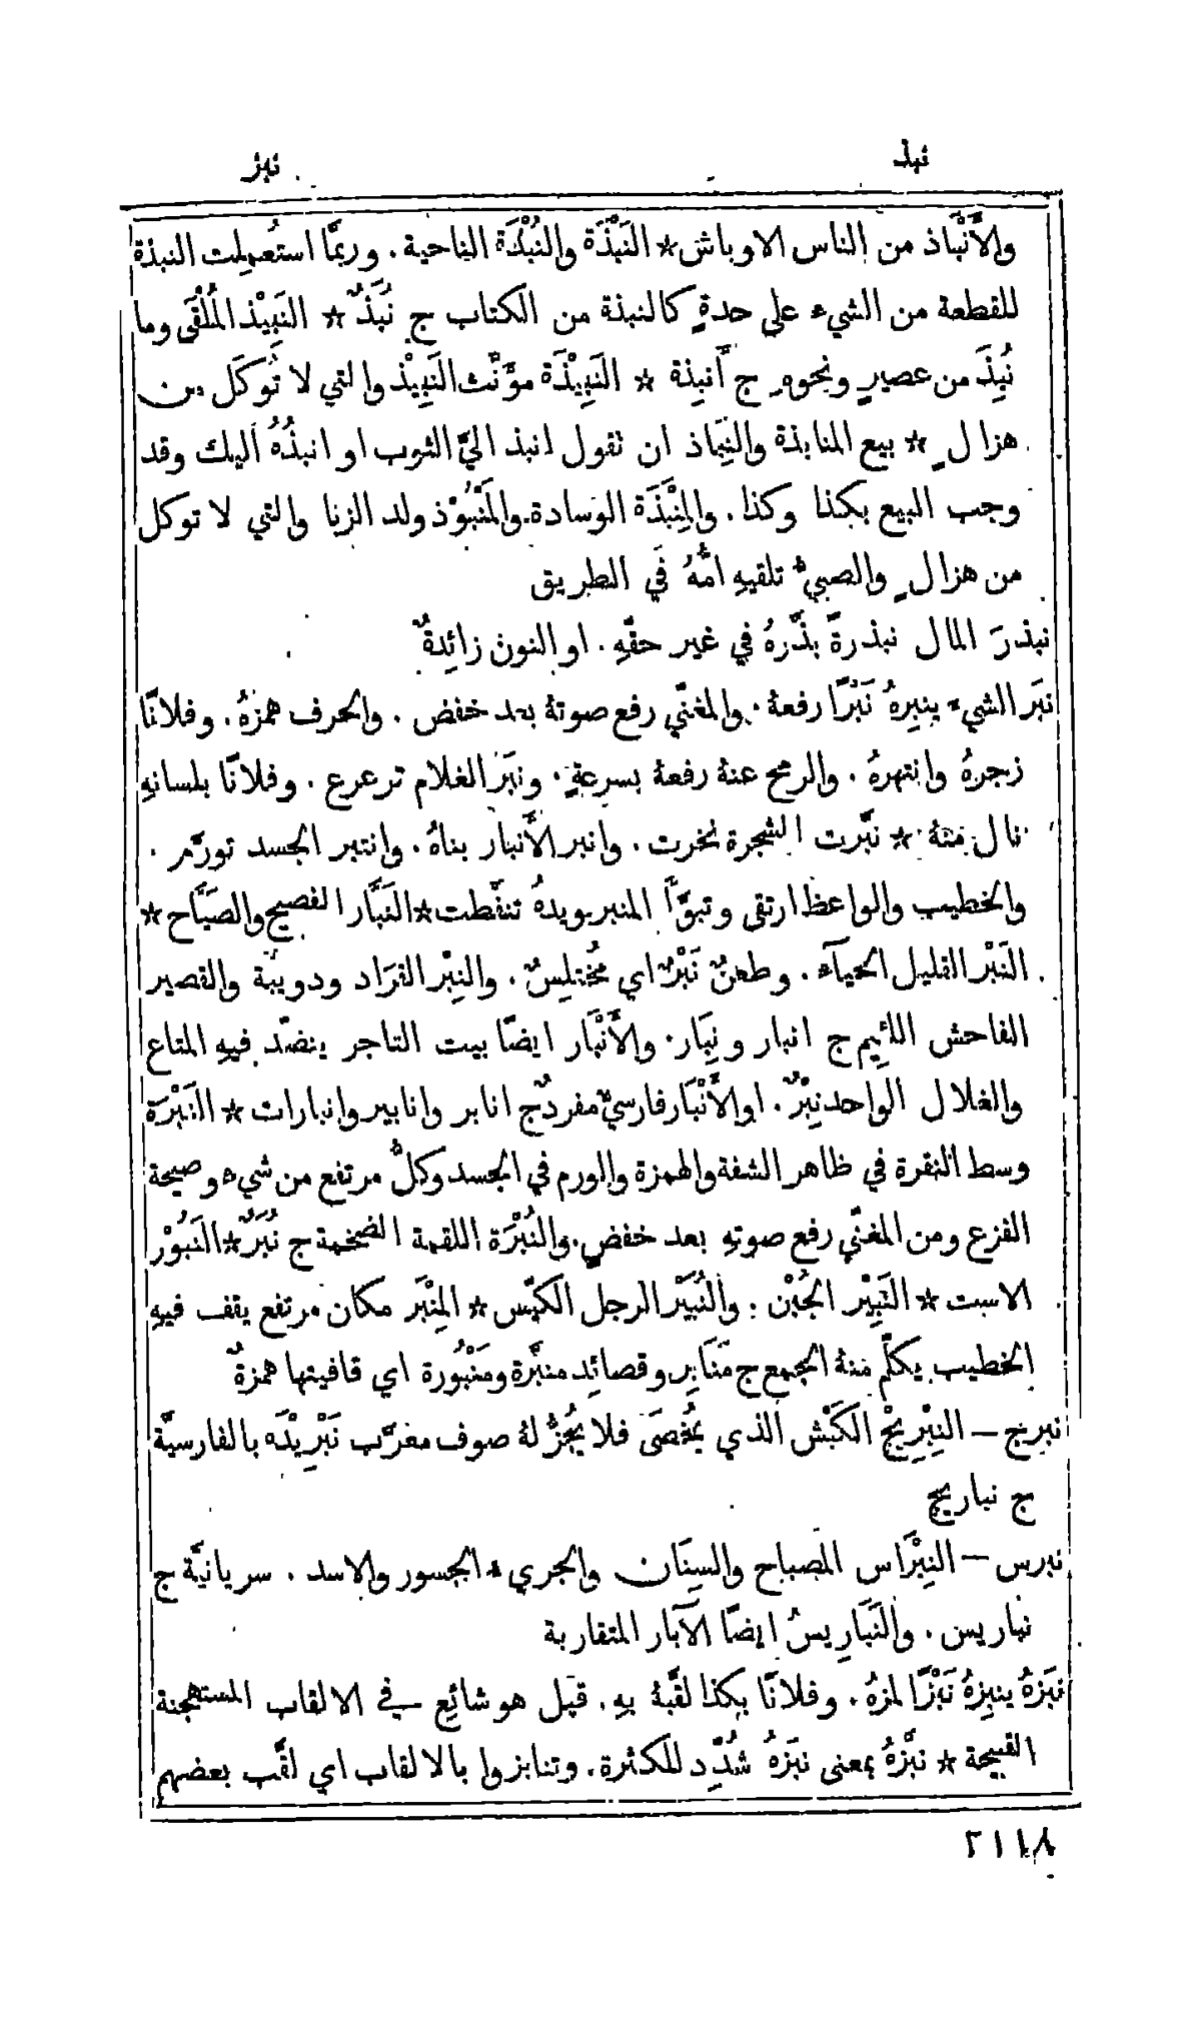 نبذ
نبز
والأَنْبَاذ من الناس الاوباش * النَبْذَة والنُبْذَة الناحية . وربَّما استُعمِلت النبذة
للقطعة من الشيء على حدةٍ كالنبذة من الكتاب ج نُبَذٌ * النَبِيْذ المُلْقَى وما
نُبِذَ من عصيرٍ ونحوهِ ج أَنبِذة * النَبِيْذَة مؤَنَّث النَبِيْذ والتي لا تُوكَل من
هزالٍ * بيع المنابذة والنِبَاذ ان تقول انبذ اليَّ الثوب او انبذُهُ اليك وقد
وجب البيع بكذا وكذا . والمِنْبَذَة الوسادة . والمَنْبُوْذ ولد الزنا والتي لا توكل
من هزالٍ والصبيُّ تلقيهِ امُّهُ في الطريق
نبذرَ المال نبذرةً بذَّرهُ في غير حقّهِ . او النون زائِدةٌ
نبَر الشيء ينبِرهُ نَبْرًا رفعهُ . والمغنّي رفع صوتهُ بعد خفض . والحرف همزهُ . وفلانًا
زجرهُ وانتهرهُ . والرمح عنهُ رفعهُ بسرعةٍ . ونبَر الغلام ترعرع . وفلانًا بلسانهِ
نال منهُ * نبَّرت الشجرة نخرت . وانبر الأَنبار بناهُ . وانتبر الجسد تورَّم .
والخطيب والواعظ ارتقى وتبوَّأَ المنبر ويدهُ تنفَّطت * النَبَّار الفصيح والصَيَّاح *
النَبْر القليل الحيآء . وطعنٌ نَبْرٌ اي مُختلِسٌ . والنِبْر القرَاد ودويبّة والقصير
الفاحش اللئِيم ج انبار ونِبَار . والأَنْبَار ايضًا بيت التاجر ينضّد فيهِ المتاع
والغلال الواحد نِبْرٌ . او الأَنْبَار فارسيٌّ مفردٌ ج انابر وانابير وانبارات * النَبْرَة
وسط النقرة في ظاهر الشفة والهمزة والورم في الجسد وكلُّ مرتفع من شيء وصيحة
الفزع ومن المغنّي رفع صوتهِ بعد خفضٍ . والنُبْرَة اللقمة الضخمة ج نُبَرٌ * النَبُوْر
الاست * النَبِيْر الجُبْن . والنُبَيْر الرجل الكيّس * المِنْبَر مكان مرتفع يقف فيهِ
الخطيب يكلّم منهُ الجمع ج مَنَابِر وقصائد منبَّرة ومَنْبُورة اي قافيتها همزةٌ
نبرج — النِبْرِيْج الكَبْش الذي يُخْصَى فلا يُجَزُّ لهُ صوف معرَّب نَبْرِيْدَه بالفارسيَّة
ج نباريج
نبرس — النِبْرَاس المصباح والسِنَان والجريء الجسور والاسد . سريانيَّة ج
نباريس . والنَبَارِيسُ ايضًا الآبار المتقاربة
نبَزهُ ينبِزهُ نَبْزًا لمزهُ . وفلانًا بكذا لقَّبهُ بهِ . قيل هو شائِع في الالقاب المستهجنة
القبيحة * نبَّزهُ بمعنى نبَزهُ شُدِّد للكثرة . وتنابزوا بالالقاب اي لقَّب بعضهم
٢١١٨